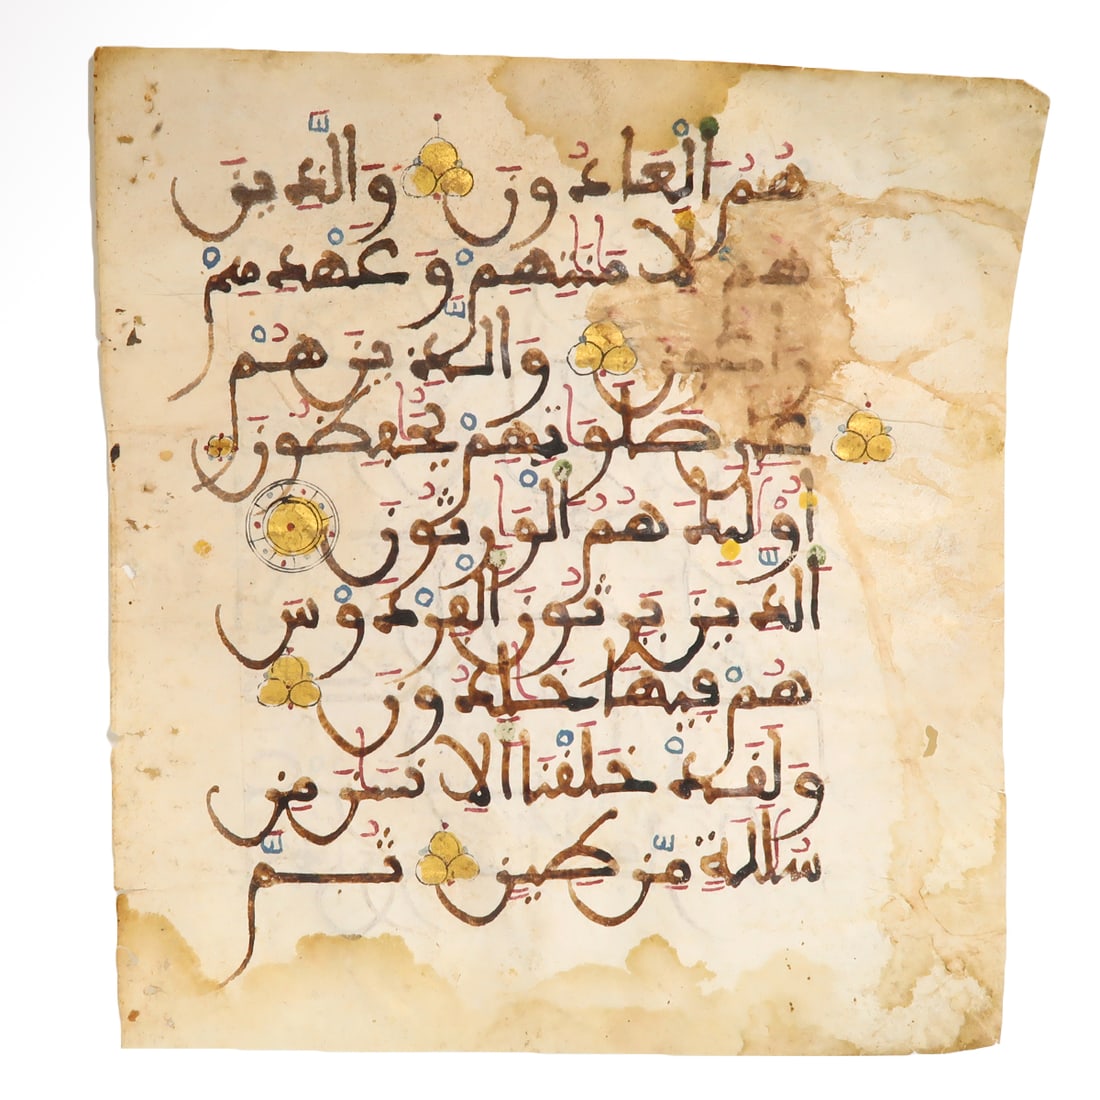 هُمُ اَ۬لْعَادُونَ وَالذِينَ
هُمْ لِأَمَٰنَٰتِهِمْ وَعَهْدِهِمْ
رَٰعُونَ وَالذِينَ هُمْ
عَلَىٰ صَلَوَٰتِهِمْ يُحَٰفِظُونَ
أُوْلَٰئِكَ هُمُ اُ۬لْوَٰرِثُونَ
اَ۬لذِينَ يَرِثُونَ اَ۬لْفِرْدَوْسَ
هُمْ فِيهَا خَٰلِدُونَ
وَلَقَدْ خَلَقْنَا اَ۬لْإِنسَٰنَ مِن
سُلَٰلَةٍ مِّن طِينٍ ثُمَّ